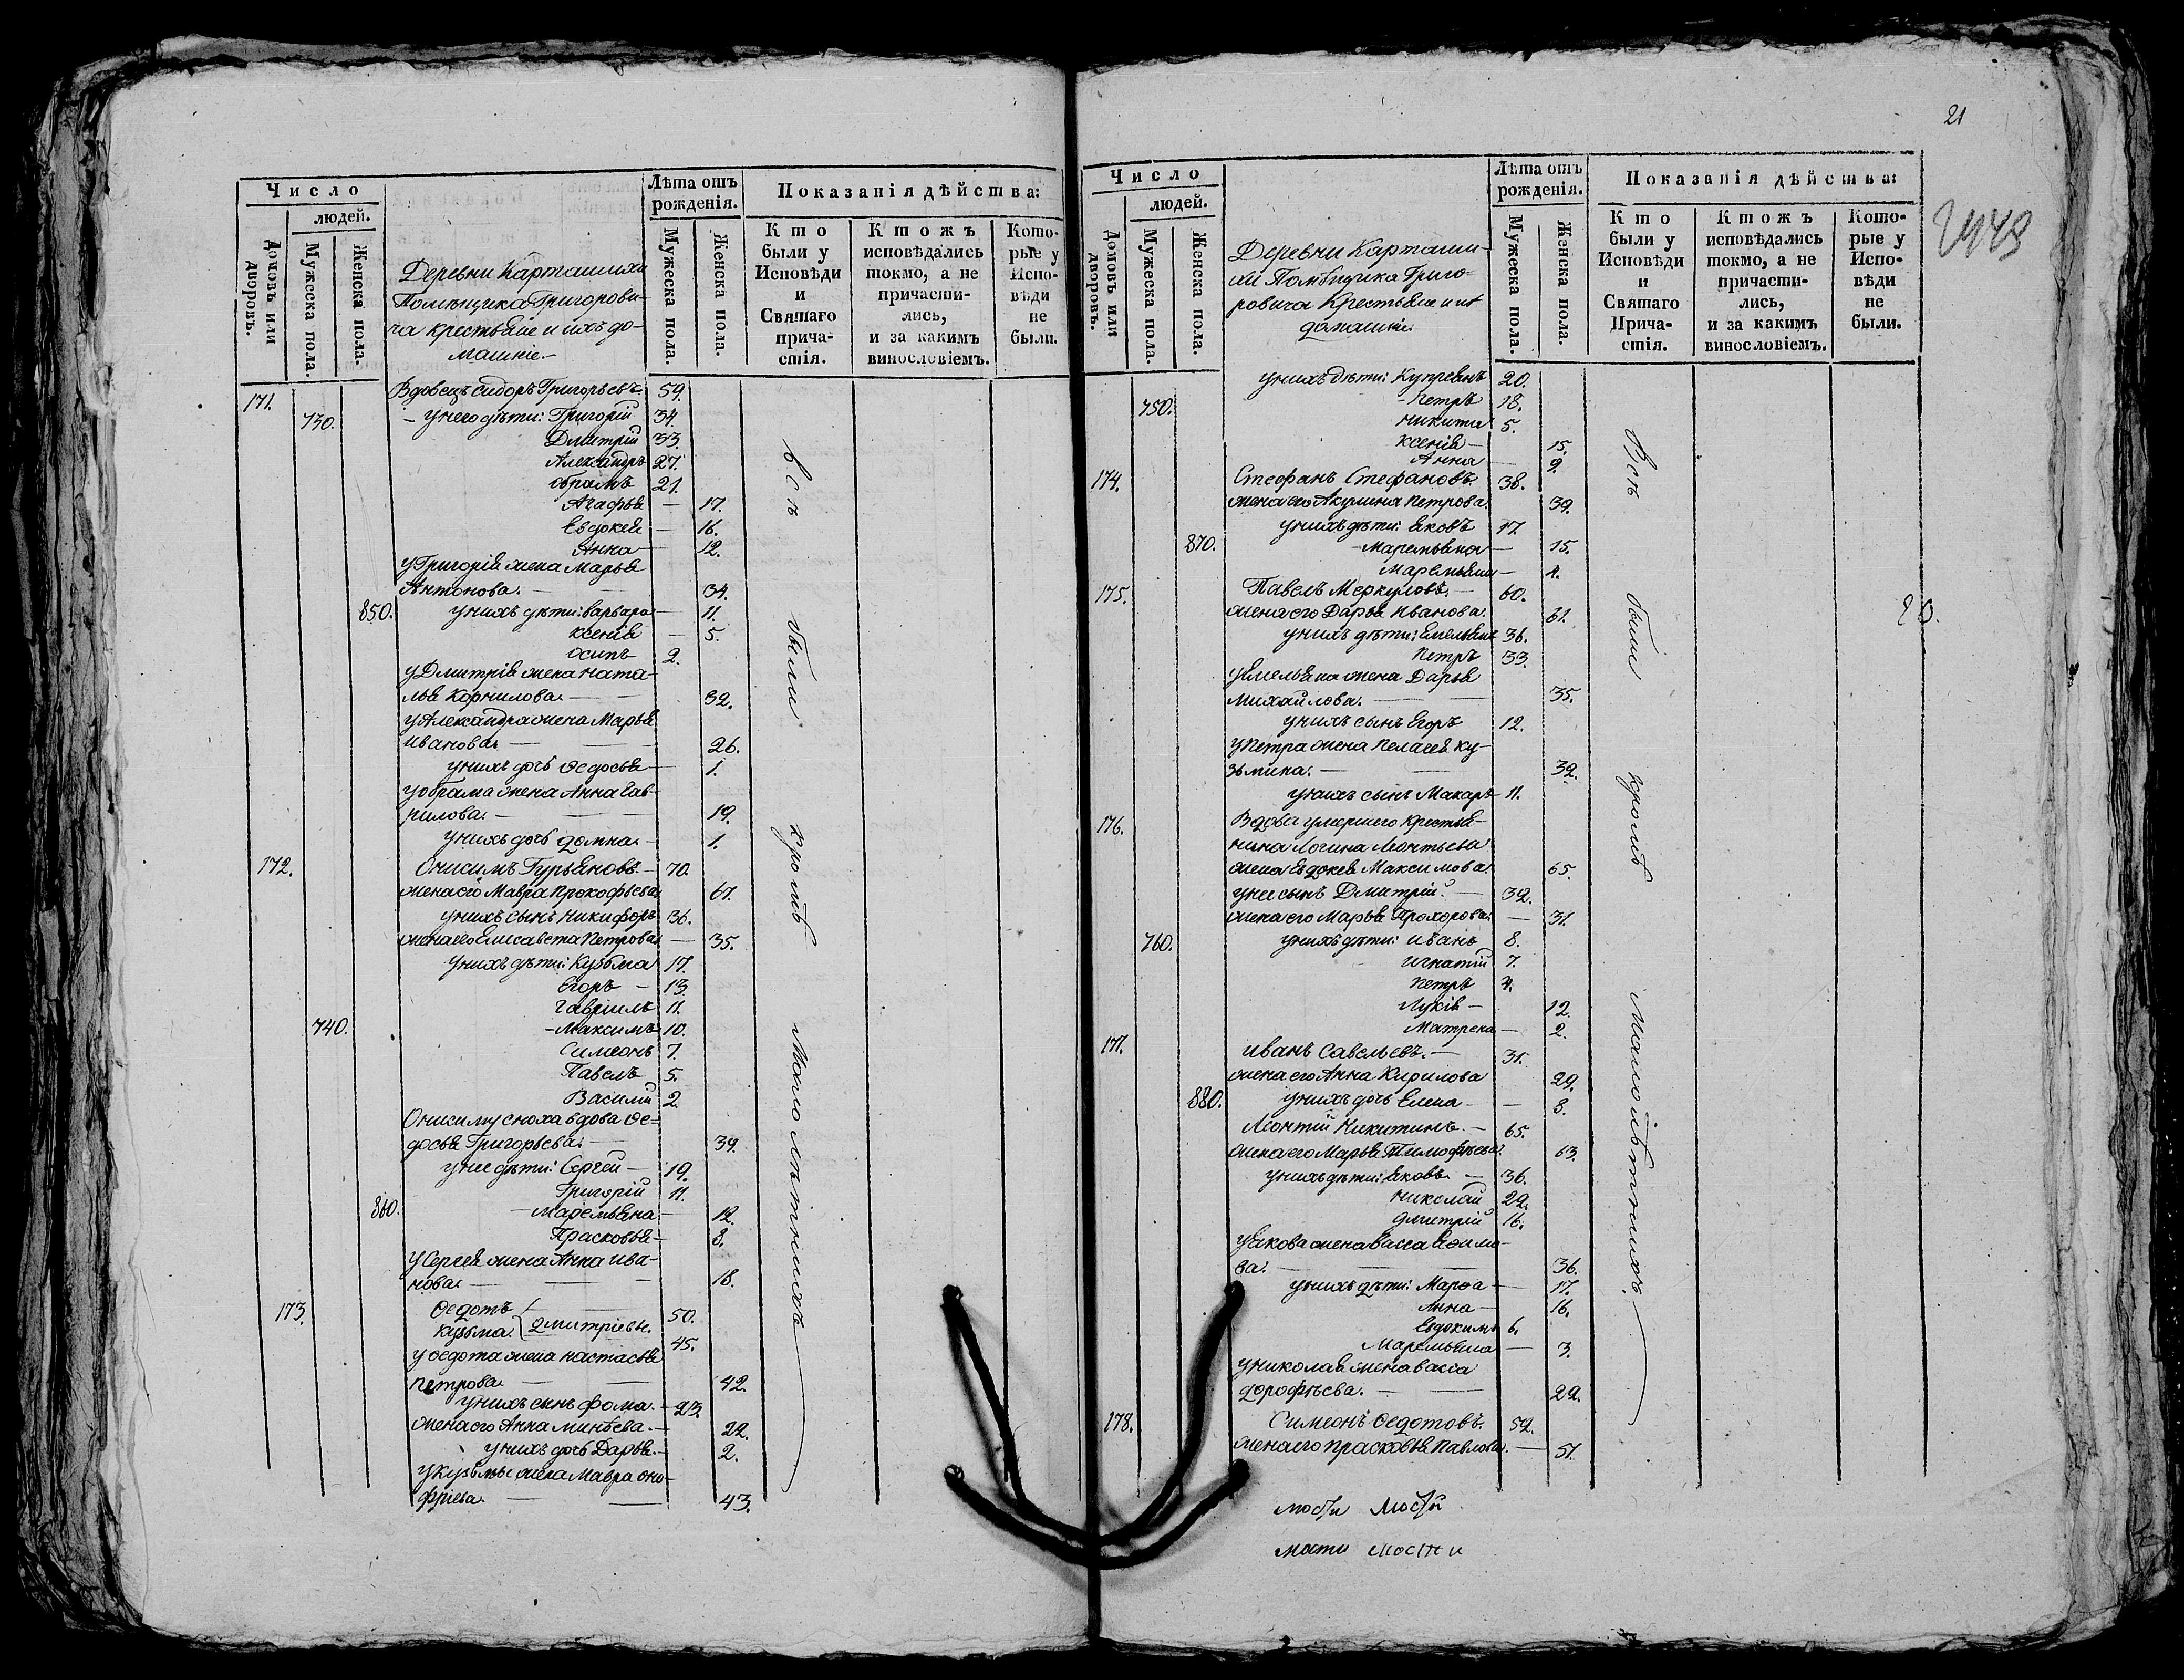 Число
людей.
Домовъ или дворовъ.
Мужеска пола.
Женска пола.
Деревни Карташихи
Помѣщика Григорови-
ча крестьяне и ихъ до-
машніе.-
Лѣта отъ рожденія.
Мужеска пола.
Женска пола.
Показанія дѣйства:
Кто были у Исповѣди и Святаго причастія.
Ктожъ исповѣдались токмо, а не причастились, и за какимъ винословіемъ.
Которые у Исповѣди не были.
171. Вдовецъ Сидоръ Григорьевъ 59.
730. - у него дѣти: Григорій 34.
Дмитрій 33.
Александръ 27.
Абрамъ 21.
Агафья — 17.
Евдокея — 16.
Анна — 12.
у Григорія жена Марья
Антонова. — 34.
850. у нихъ дѣти: Варвара — 11.
Ксенія — 5.
Осипъ 2.
у Дмитрія жена Ната-
лья Корнилова. — 32.
у Александра жена Марья
Иванова. — 26.
у нихъ дочь Ѳедосья — 1.
у Абрама жена Анна Гав-
рилова. — 19.
у нихъ дочь Домна. — 1.
172. Онисимъ Гурьяновъ. — 70.
жена его Мавра Прокофьева 67.
у нихъ сынъ Никифоръ 36.
жена его Елисавета Петрова — 35.
у нихъ дѣти: Кузьма 17.
Егоръ — 13.
Гавріилъ 11.
740. - Максимъ 10.
Симеонъ 7.
Павелъ 5.
Василій 2.
Онисиму сноха вдова Ѳе-
досья Григорьева. — 39.
у нее дѣти: Сергей — 19.
Григорій 11.
860. - Маремьяна — 12.
Прасковья — 8.
у Сергея жена Анна Ива-
нова. — 18.
173. Ѳедотъ
Кузьма } Дмитріевы. 50.
45.
у Ѳедота жена Настасья
Петрова — 42.
у нихъ сынъ Фома. — 23.
жена его Анна Минѣева. — 22.
у нихъ дочь Дарья. — 2.
у Кузьмы жена Мавра Оно-
фріева. — 43.
Всѣ были кромѣ Малолѣтнихъ
21
2448
Число
людей.
Домовъ или дворовъ.
Мужеска пола.
Женска пола.
Деревни Карташи-
хи Помѣщика Григо-
ровича Крестьяне и ихъ
домашніе.
Лѣта отъ рожденія.
Мужеска пола.
Женска пола.
Показанія дѣйства:
Кто были у Исповѣди и Святаго Причастія.
Ктожъ исповѣдались токмо, а не причастились, и за какимъ винословіемъ.
Которые у Исповѣди не были.
у нихъ дѣти: Купреянъ 20.
750. - Петръ 18.
Никита 5.
Ксенія — 15.
Анна — 9.
174. Стефанъ Стефановъ. 38.
жена его Акулина Петрова. 39.
у нихъ дѣти: Яковъ 17.
870. - Маремьяна — 15.
Маремьяна — 4.
175. Павелъ Меркуловъ. — 60.
жена его Дарья Иванова. 61.
у нихъ дѣти: Емельянъ 36.
Петръ 33.
у Емельяна жена Дарья
Михайлова. — 35.
у нихъ сынъ Егоръ 12.
у Петра жена Пелагея Ку-
зьмина. — 32.
у нихъ сынъ Макаръ 11.
176. Вдова умершего крестья-
нина Логина Леонтьева
жена Евдокея Максимова. 65.
у нее сынъ Дмитрій. — 32.
жена его Марья Прохорова. — 31.
760. у нихъ дѣти: Иванъ 8.
Игнатій 7.
Петръ 4.
Лукія — 12.
Матрена — 2.
177. Иванъ Савельевъ. — 31.
жена его Анна Кирилова 29.
880. у нихъ дочь Елена — 8.
Леонтій Никитинъ. — 65.
жена его Марья Тимофѣева. 63.
у нихъ дѣти: Яковъ — 36.
Николай 29.
Дмитрій 16.
у Якова жена Васса Ефимо-
ва. — 36.
у нихъ дѣти: Марѳа — 17.
Анна — 16.
Евдокимъ 6.
Маремьяна — 3.
у Николая жена Васса
Дорофѣева. — 29.
178. Симеонъ Ѳедотовъ. 52.
жена его Прасковья Павлова. — 51.
Всѣ были кромѣ Малолѣтнихъ.